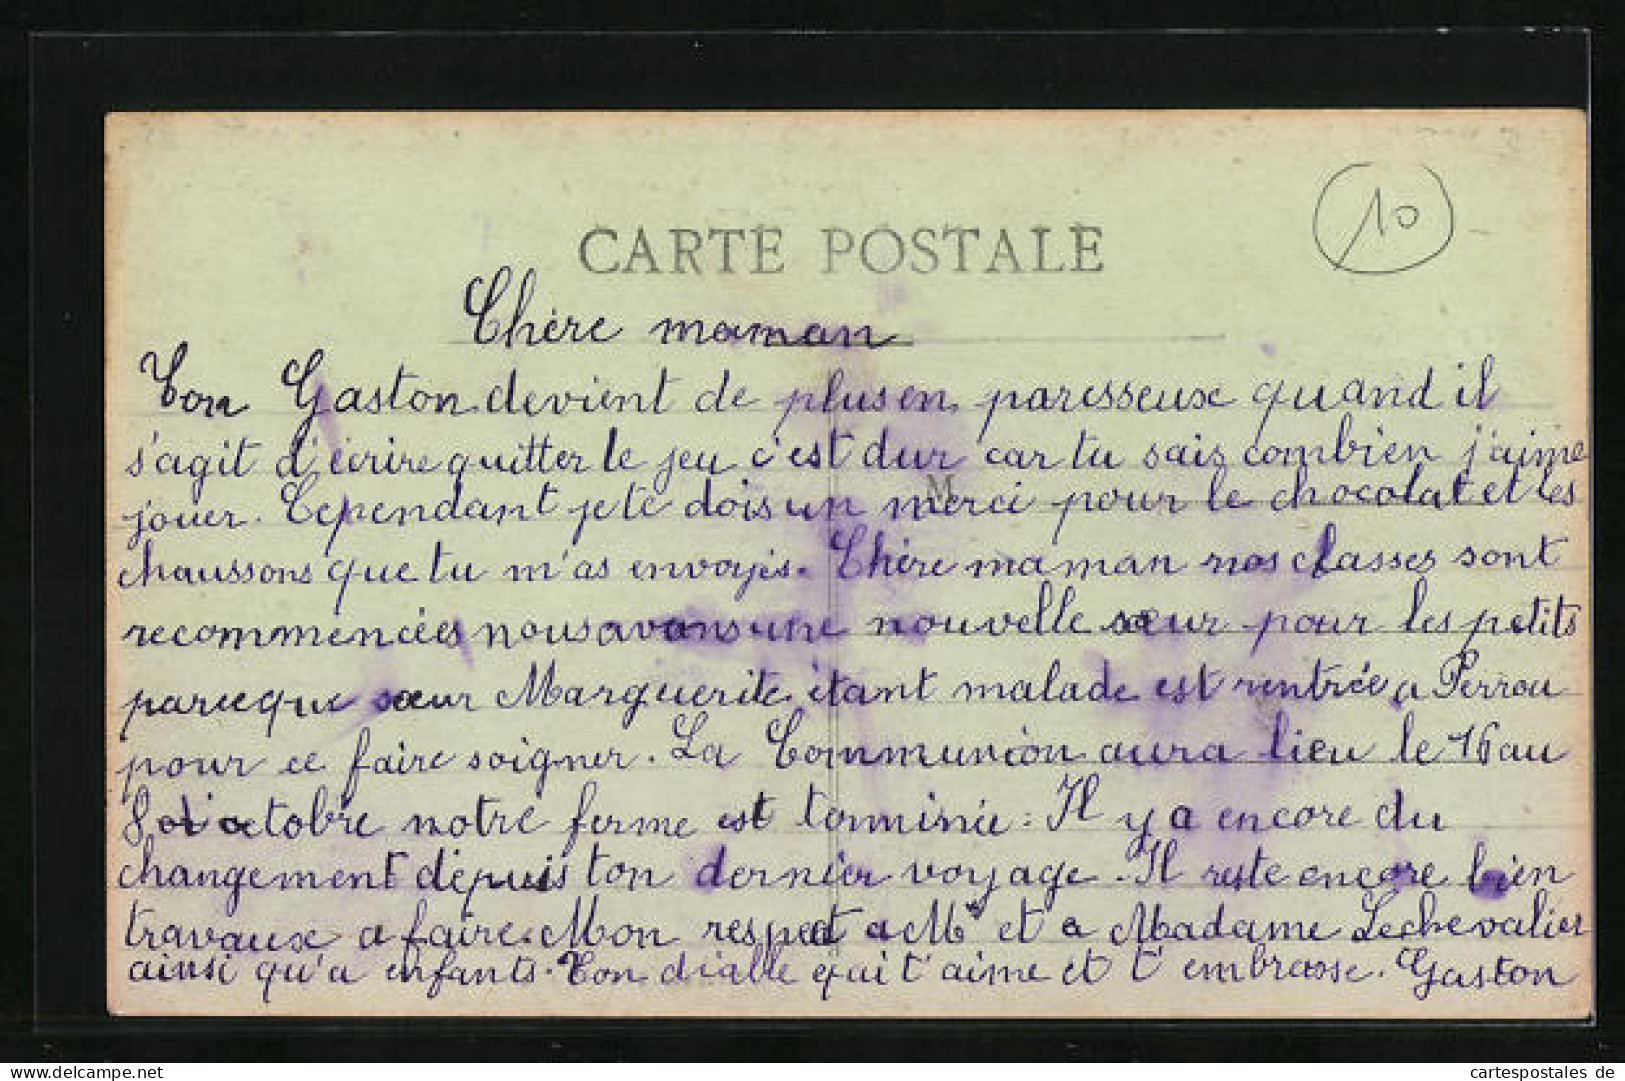 10
CARTE POSTALE
Chère maman
Ton Gaston devient de plus en paresseux quand il
s'agit d'écrire quitter le jeu c'est dur car tu sais combien j'aime
jouer. Cependant je te dois un merci pour le chocolat et les
chaussons que tu m'as envoyés. Chère maman nos classes sont
recommencées nous avons une nouvelle sœur pour les petits
parceque sœur Marguerite étant malade est rentrée a Perrou
pour ce faire soigner. La Communion aura lieu le 16 au
8 octobre notre ferme est terminée. Il y a encore du
changement dépuis ton dernier voyage. Il reste encore bien
travaux a faire. Mon respect a Mr et a Madame Lechevalier
ainsi qu'a enfants. Ton diable qui t'aime et t'embrasse. Gaston
M
delcampe.net
cartespostales de